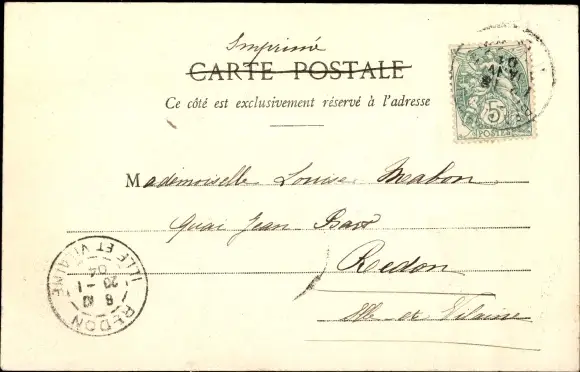 Imprimé
CARTE POSTALE
Ce côté est exclusivement réservé à l'adresse
5
POSTES
Mademoiselle Louise Mabon
Quai Jean Bart
Redon
Ille et Vilaine
REDON
20 - 1
04
ILLE ET VILAINE